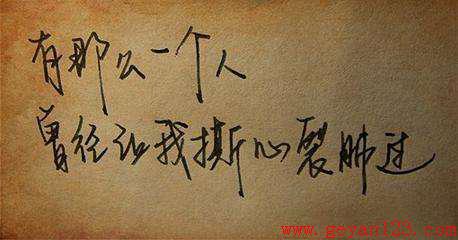 有那么一个人
曾经让我撕心裂肺过
www.geyanl23.com